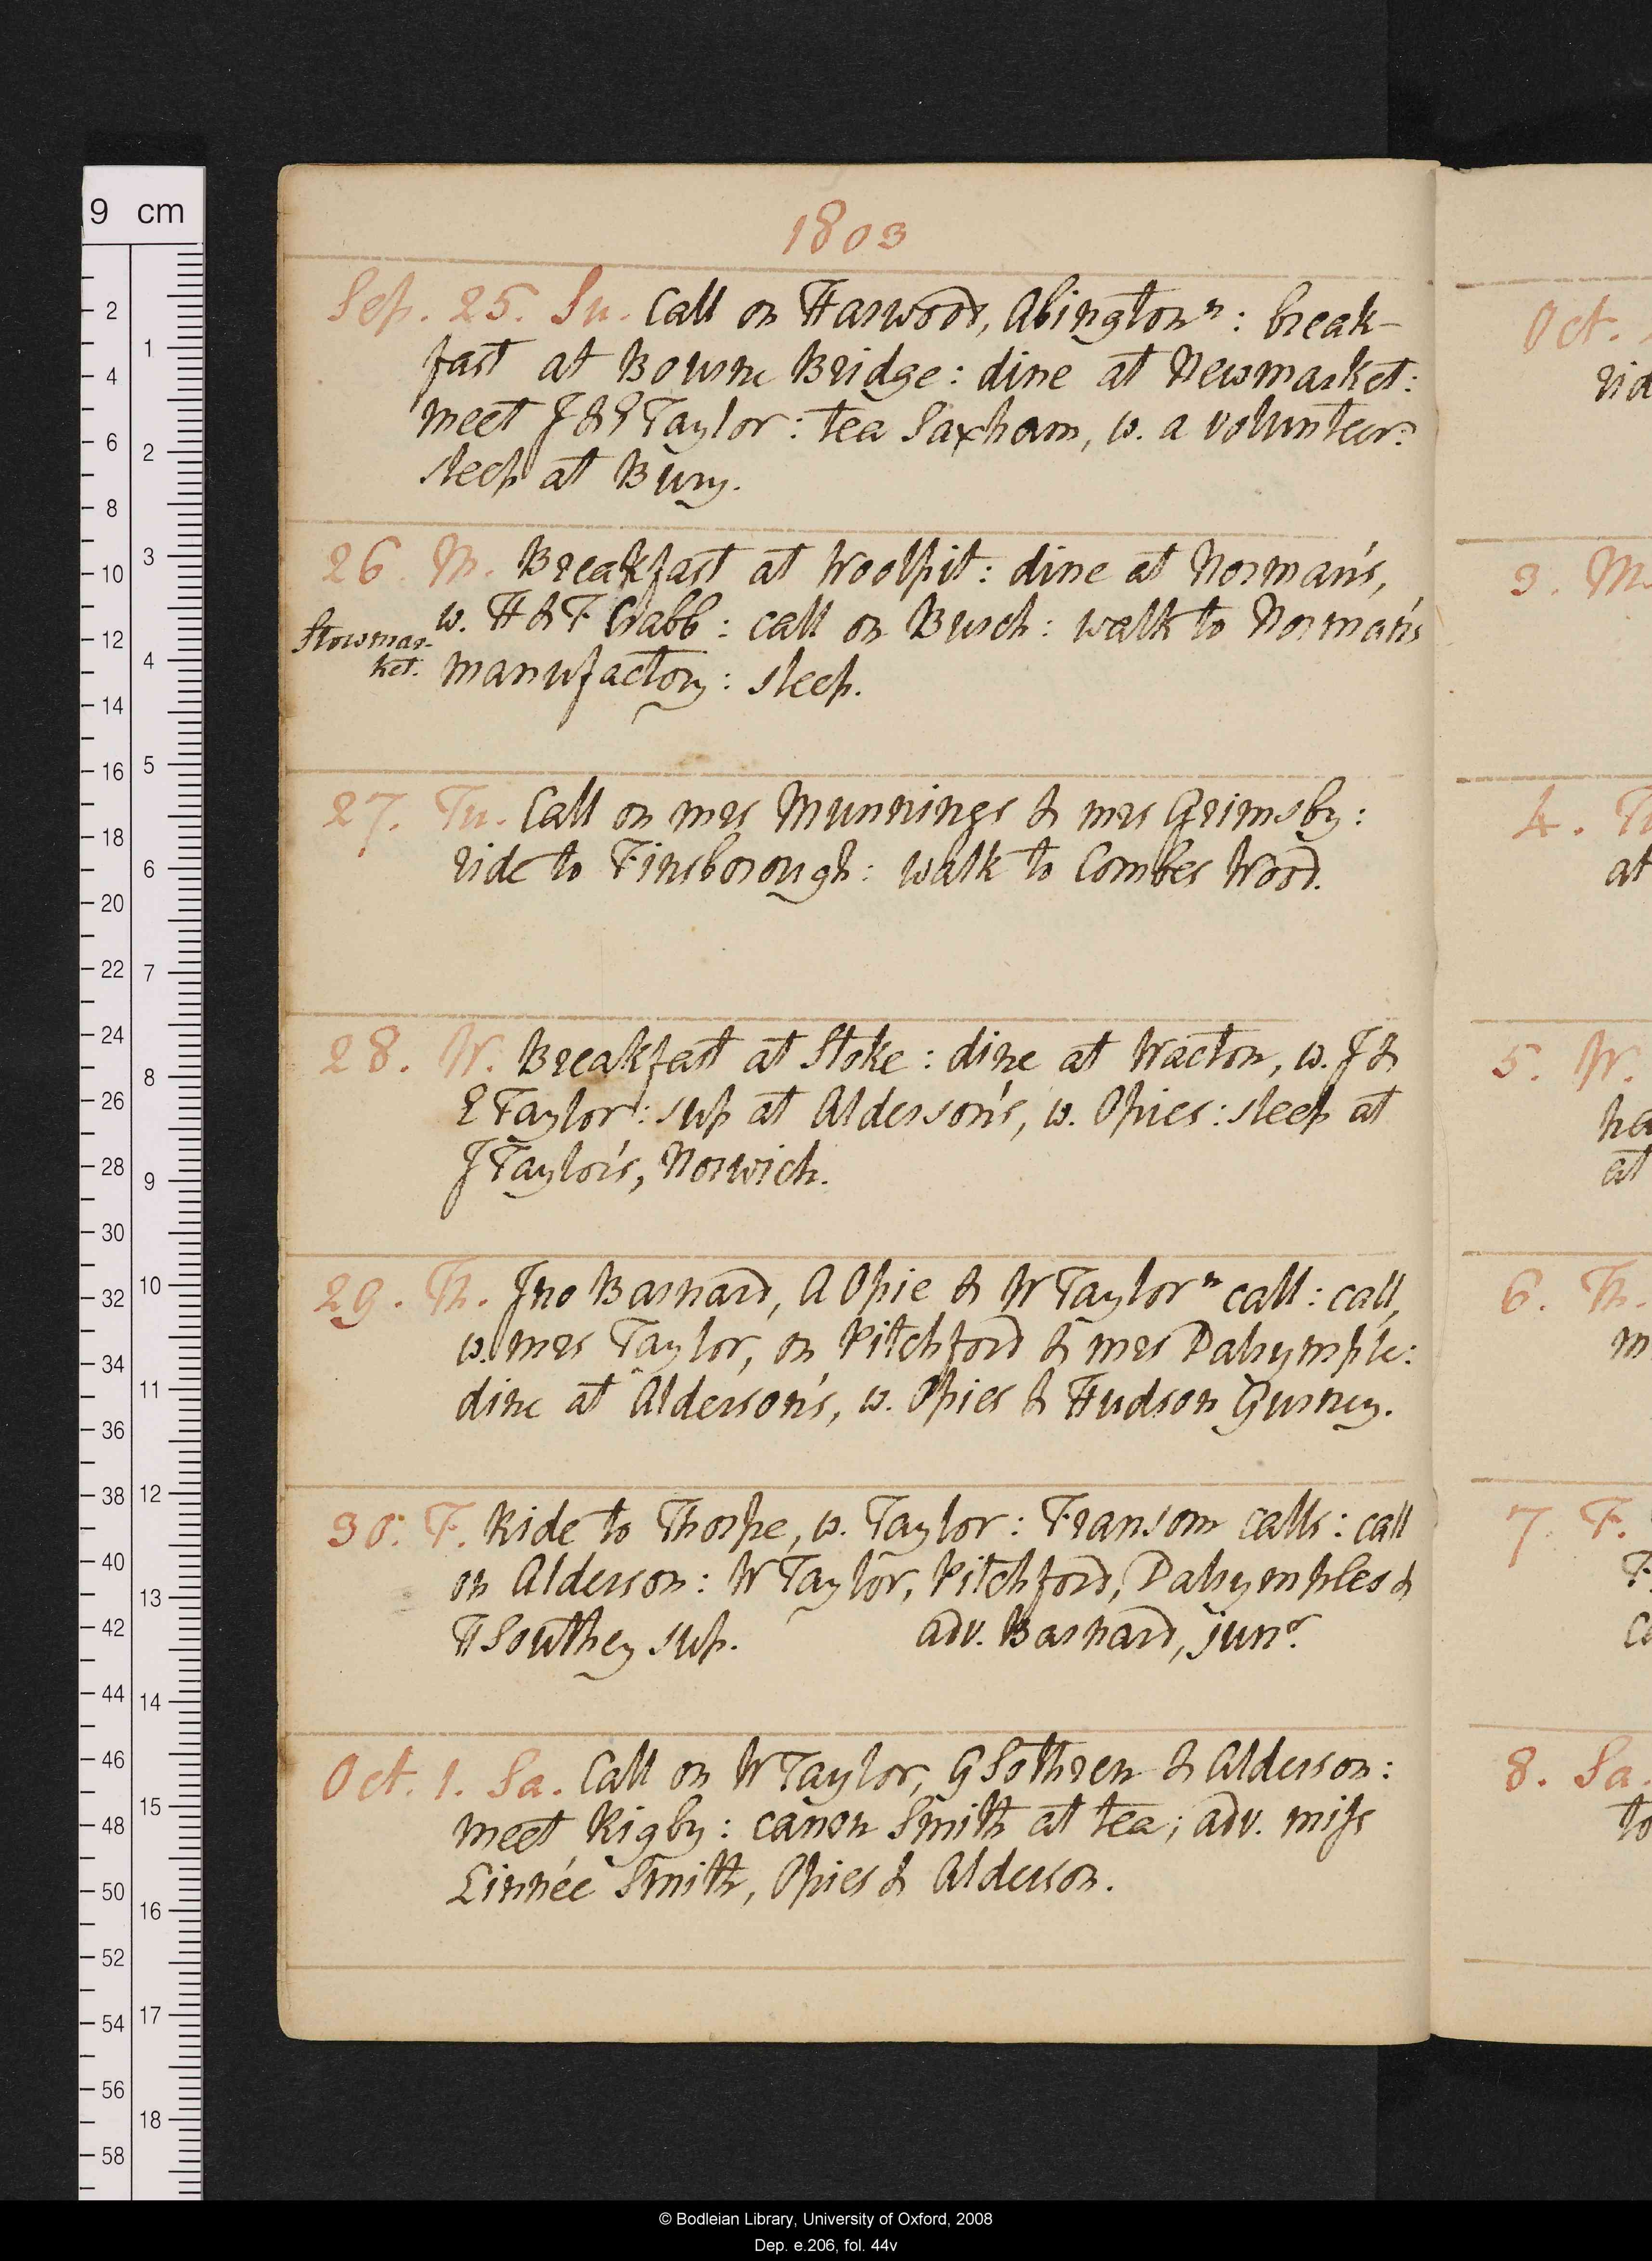 1803
Sep. 25. Su. Call on Harwood, Abington⁠ⁿ: break-
fast at Bourne Bridge: dine at Newmarket:
meet J & E Taylor: tea Saxham, w. a volunteer:
sleep at Bury.
26. M. Breakfast at Woolpit: dine at Norman's,
w. H & F Crabb: call on Busch: walk to Norman's
Stowmar-
ket. manufactory: sleep.
27. Tu. Call on mrs Munnings & mrs Grimsby:
ride to Finsborough: walk to Combes Wood.
28. W. Breakfast at Stoke: dine at Wacton, w. J &
E Taylor: sup at Alderson's, w. Opies: sleep at
J Taylor's, Norwich.
29. Th. Jno Barnard, A Opie & W Taylorⁿ call: call,
w. mrs Taylor, on Pitchford & mrs Dalrymple:
dine at Alderson's, w. Opies & Hudson Gurney.
30. F. Ride to Thorpe, w. Taylor: Fransom calls: call
on Alderson: W Taylor, Pitchford, Dalrymples &
H Southey sup. adv. Barnard, junr.
Oct. 1. Sa. Call on W Taylor, G Sothren & Alderson:
meet Rigby: canon Smith at tea; adv. miss
Linnée Smith, Opies & Alderson.
Oct.
rid
3. M.
4. Tu
at
5. W.
ha
at
6. Th.
m
7. F.
F
ca
8. Sa.
to
9 cm
2
4
6
8
10
12
14
16
18
20
22
24
26
28
30
32
34
36
38
40
42
44
46
48
50
52
54
56
58
1
2
3
4
5
6
7
8
9
10
11
12
13
14
15
16
17
18
© Bodleian Library, University of Oxford, 2008
Dep. e.206, fol. 44v